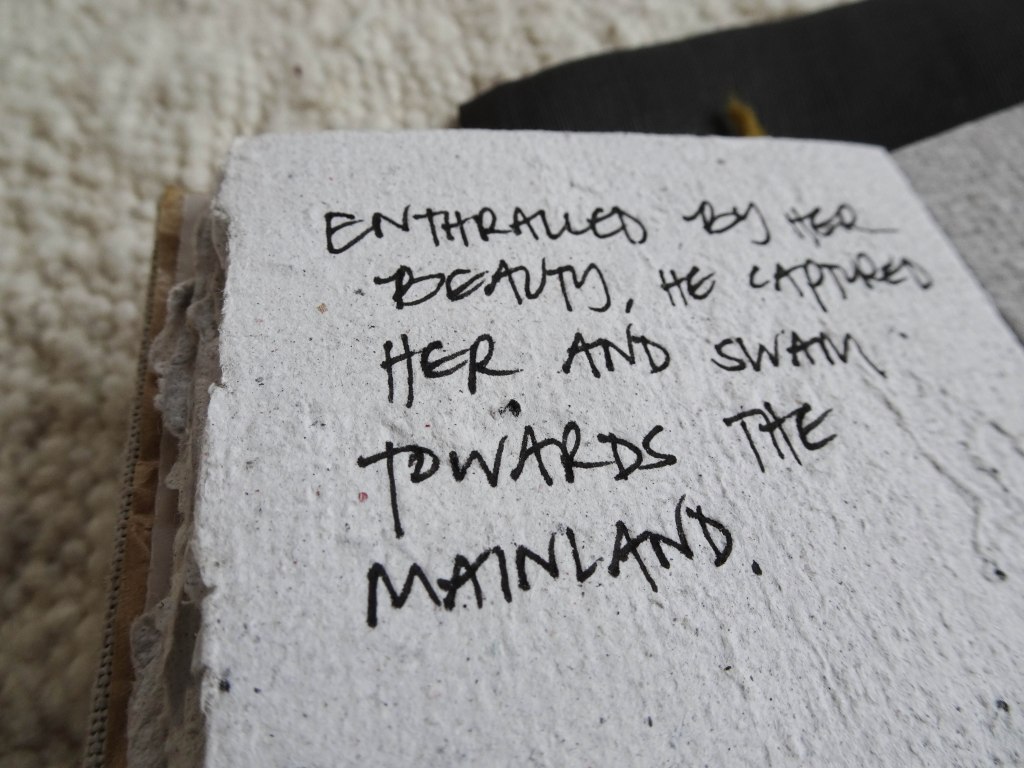 ENTHRALLED BY HER
BEAUTY, HE CAPTURED
HER AND SWAM
TOWARDS THE
MAINLAND.